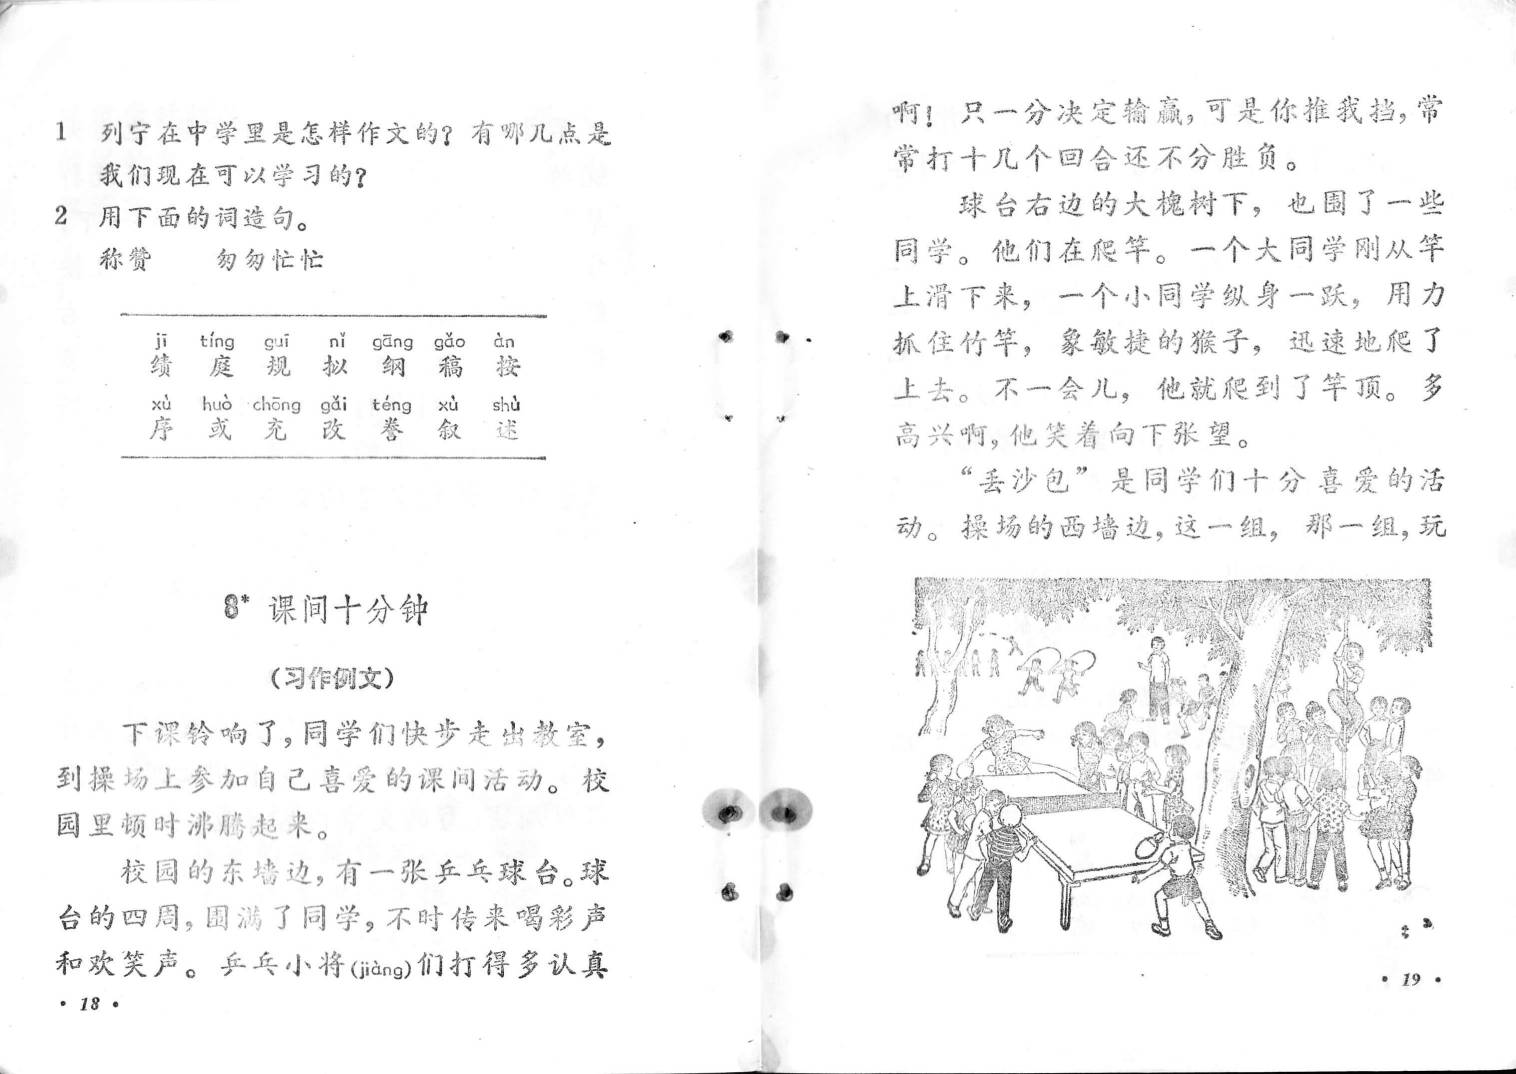 1 列宁在中学里是怎样作文的？有哪几点是
我们现在可以学习的？
2 用下面的词造句。
称赞 匆匆忙忙
jī tíng guī nǐ gāng gǎo àn
绩 庭 规 拟 纲 稿 按
xù huò chōng gǎi téng xù shù
序 或 充 改 誊 叙 述
8* 课间十分钟
（习作例文）
下课铃响了，同学们快步走出教室，
到操场上参加自己喜爱的课间活动。校
园里顿时沸腾起来。
校园的东墙边，有一张乒乓球台。球
台的四周，围满了同学，不时传来喝彩声
和欢笑声。乒乓小将（jiàng）们打得多认真
· 18 ·
啊！只一分决定输赢，可是你推我挡，常
常打十几个回合还不分胜负。
球台右边的大槐树下，也围了一些
同学。他们在爬竿。一个大同学刚从竿
上滑下来，一个小同学纵身一跃，用力
抓住竹竿，象敏捷的猴子，迅速地爬了
上去。不一会儿，他就爬到了竿顶。多
高兴啊，他笑着向下张望。
“丢沙包”是同学们十分喜爱的活
动。操场的西墙边，这一组，那一组，玩
· 19 ·